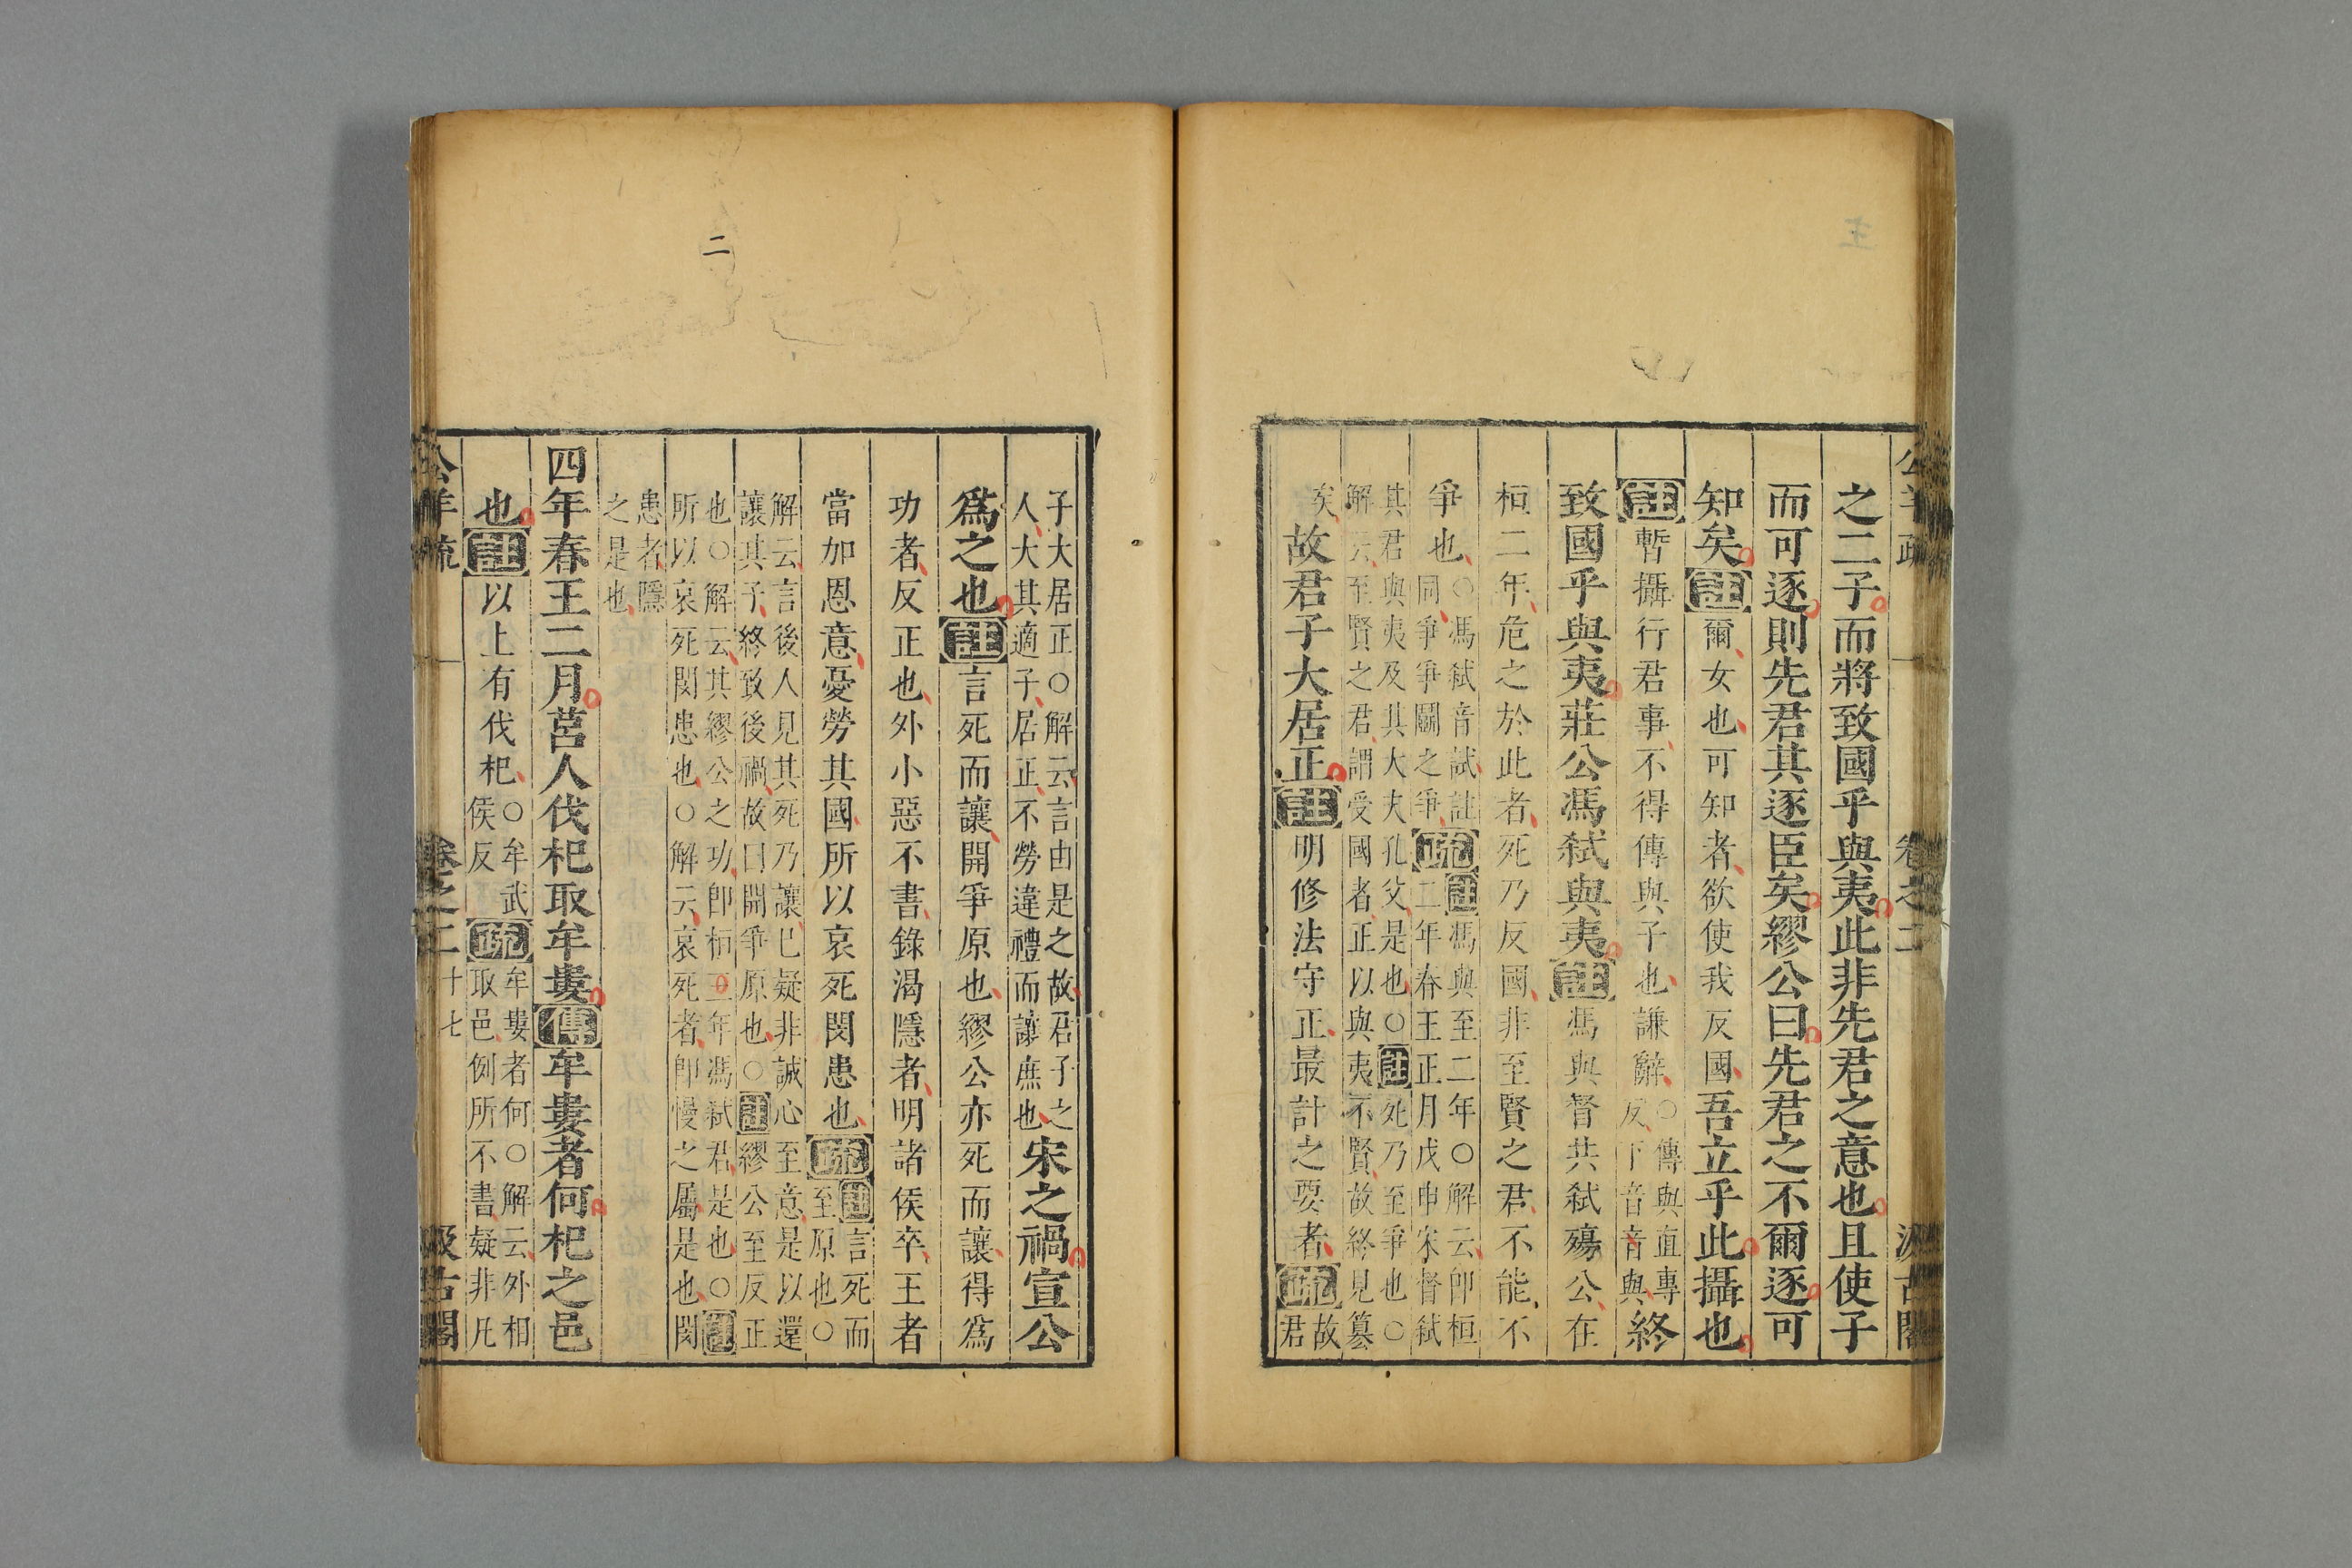 公羊疏 卷之二 汲古閣
之二子而將致國乎與夷此非先君之意也且使子
而可逐則先君其逐臣矣繆公曰先君之不爾逐可
知矣註爾女也可知者欲使我反國吾立乎此攝也
註暫攝行君事不得傳與子也謙辭○傳與直專反下音音與終
致國乎與夷莊公馮弒與夷註馮與督共弒殤公在
桓二年危之於此者死乃反國非至賢之君不能不
爭也○馮弒音試註同爭爭鬬之爭疏註馮與至二年○解云即桓二年春王正月戊申宋督弒
其君與夷及其大夫孔父是也○註死乃至爭也○解云至賢之君謂受國者正以與夷不賢故終見篡
矣故君子大居正註明修法守正最計之要者疏故君
子大居正○解云言由是之故君子之人大其適子居正不勞違禮而讓庶也宋之禍宣公
爲之也註言死而讓開爭原也繆公亦死而讓得爲
功者反正也外小惡不書錄渴隱者明諸侯卒王者
當加恩意憂勞其國所以哀死閔患也疏註言死而至原也○
解云言後人見其死乃讓已疑非誠心至意是以還讓其子終致後禍故曰開爭原也○註繆公至反正
也○解云其繆公之功即桓二年馮弒君是也○註所以哀死閔患也○解云哀死者即慢之屬是也閔
患者隱之是也
四年春王二月莒人伐杞取牟婁傳牟婁者何杞之邑
也註以上有伐杞○牟武侯反疏牟婁者何○解云外相取邑例所不書疑非凡
公羊疏 卷之二 十七 汲古閣
二